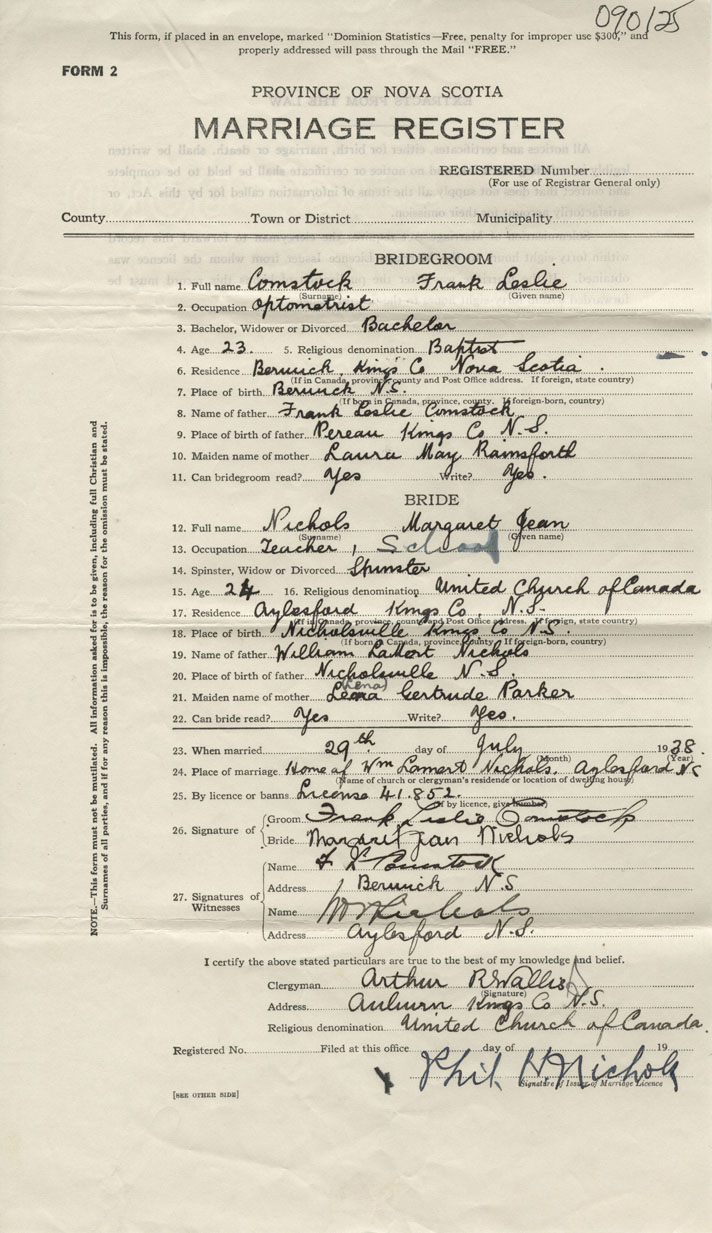 090125
This form, if placed in an envelope, marked "Dominion Statistics—Free, penalty for improper use $300," and
properly addressed will pass through the Mail "FREE."
FORM 2
PROVINCE OF NOVA SCOTIA
MARRIAGE REGISTER
REGISTERED Number
(For use of Registrar General only)
County Town or District Municipality
BRIDEGROOM
1. Full name Comstock Frank Leslie
(Surname) (Given name)
2. Occupation Optometrist
3. Bachelor, Widower or Divorced Bachelor
4. Age 23. 5. Religious denomination Baptist
6. Residence Berwick, Kings Co Nova Scotia .
(If in Canada, province, county and Post Office address. If foreign, state country)
7. Place of birth Berwick N.S.
(If born in Canada, province, county. If foreign-born, country)
8. Name of father Frank Leslie Comstock
9. Place of birth of father Pereau Kings Co N.S.
10. Maiden name of mother Laura May Rainsforth
11. Can bridegroom read? Yes Write? Yes.
BRIDE
12. Full name Nichols Margaret Jean
(Surname) (Given name)
13. Occupation Teacher, School
14. Spinster, Widow or Divorced Spinster
15. Age 24 16. Religious denomination United Church of Canada
17. Residence Aylesford Kings Co, N.S.
(If in Canada, province, county and Post Office address. If foreign, state country)
18. Place of birth Nicholsville Kings Co N.S.
(If born in Canada, province, county. If foreign-born, country)
19. Name of father William LaMert Nichols
20. Place of birth of father Nicholsville N.S.
(Lena)
21. Maiden name of mother Gertrude Parker
22. Can bride read? Yes Write? Yes.
23. When married 29th day of July 1938.
(Month) (Year)
24. Place of marriage Home of Wm Lamert Nichols, Aylesford NS
(Name of church or clergyman's residence or location of dwelling house)
25. By licence or banns License 41.852.
(If by licence, give number)
26. Signature of Groom Frank Leslie Comstock
Bride Margaret Jean Nichols
27. Signatures of Witnesses
Name F L Comstock
Address Berwick N.S.
Name Nichols
Address Aylesford N.S.
I certify the above stated particulars are true to the best of my knowledge and belief.
Clergyman Arthur R Wallis
(Signature)
Address Auburn Kings Co N.S.
Religious denomination United Church of Canada.
Registered No. Filed at this office day of 19
Phil H. Nichols
Signature of Issuer of Marriage Licence
[SEE OTHER SIDE]
NOTE.—This form must not be mutilated. All information asked for is to be given, including full Christian and
Surnames of all parties, and if for any reason this is impossible, the reason for the omission must be stated.